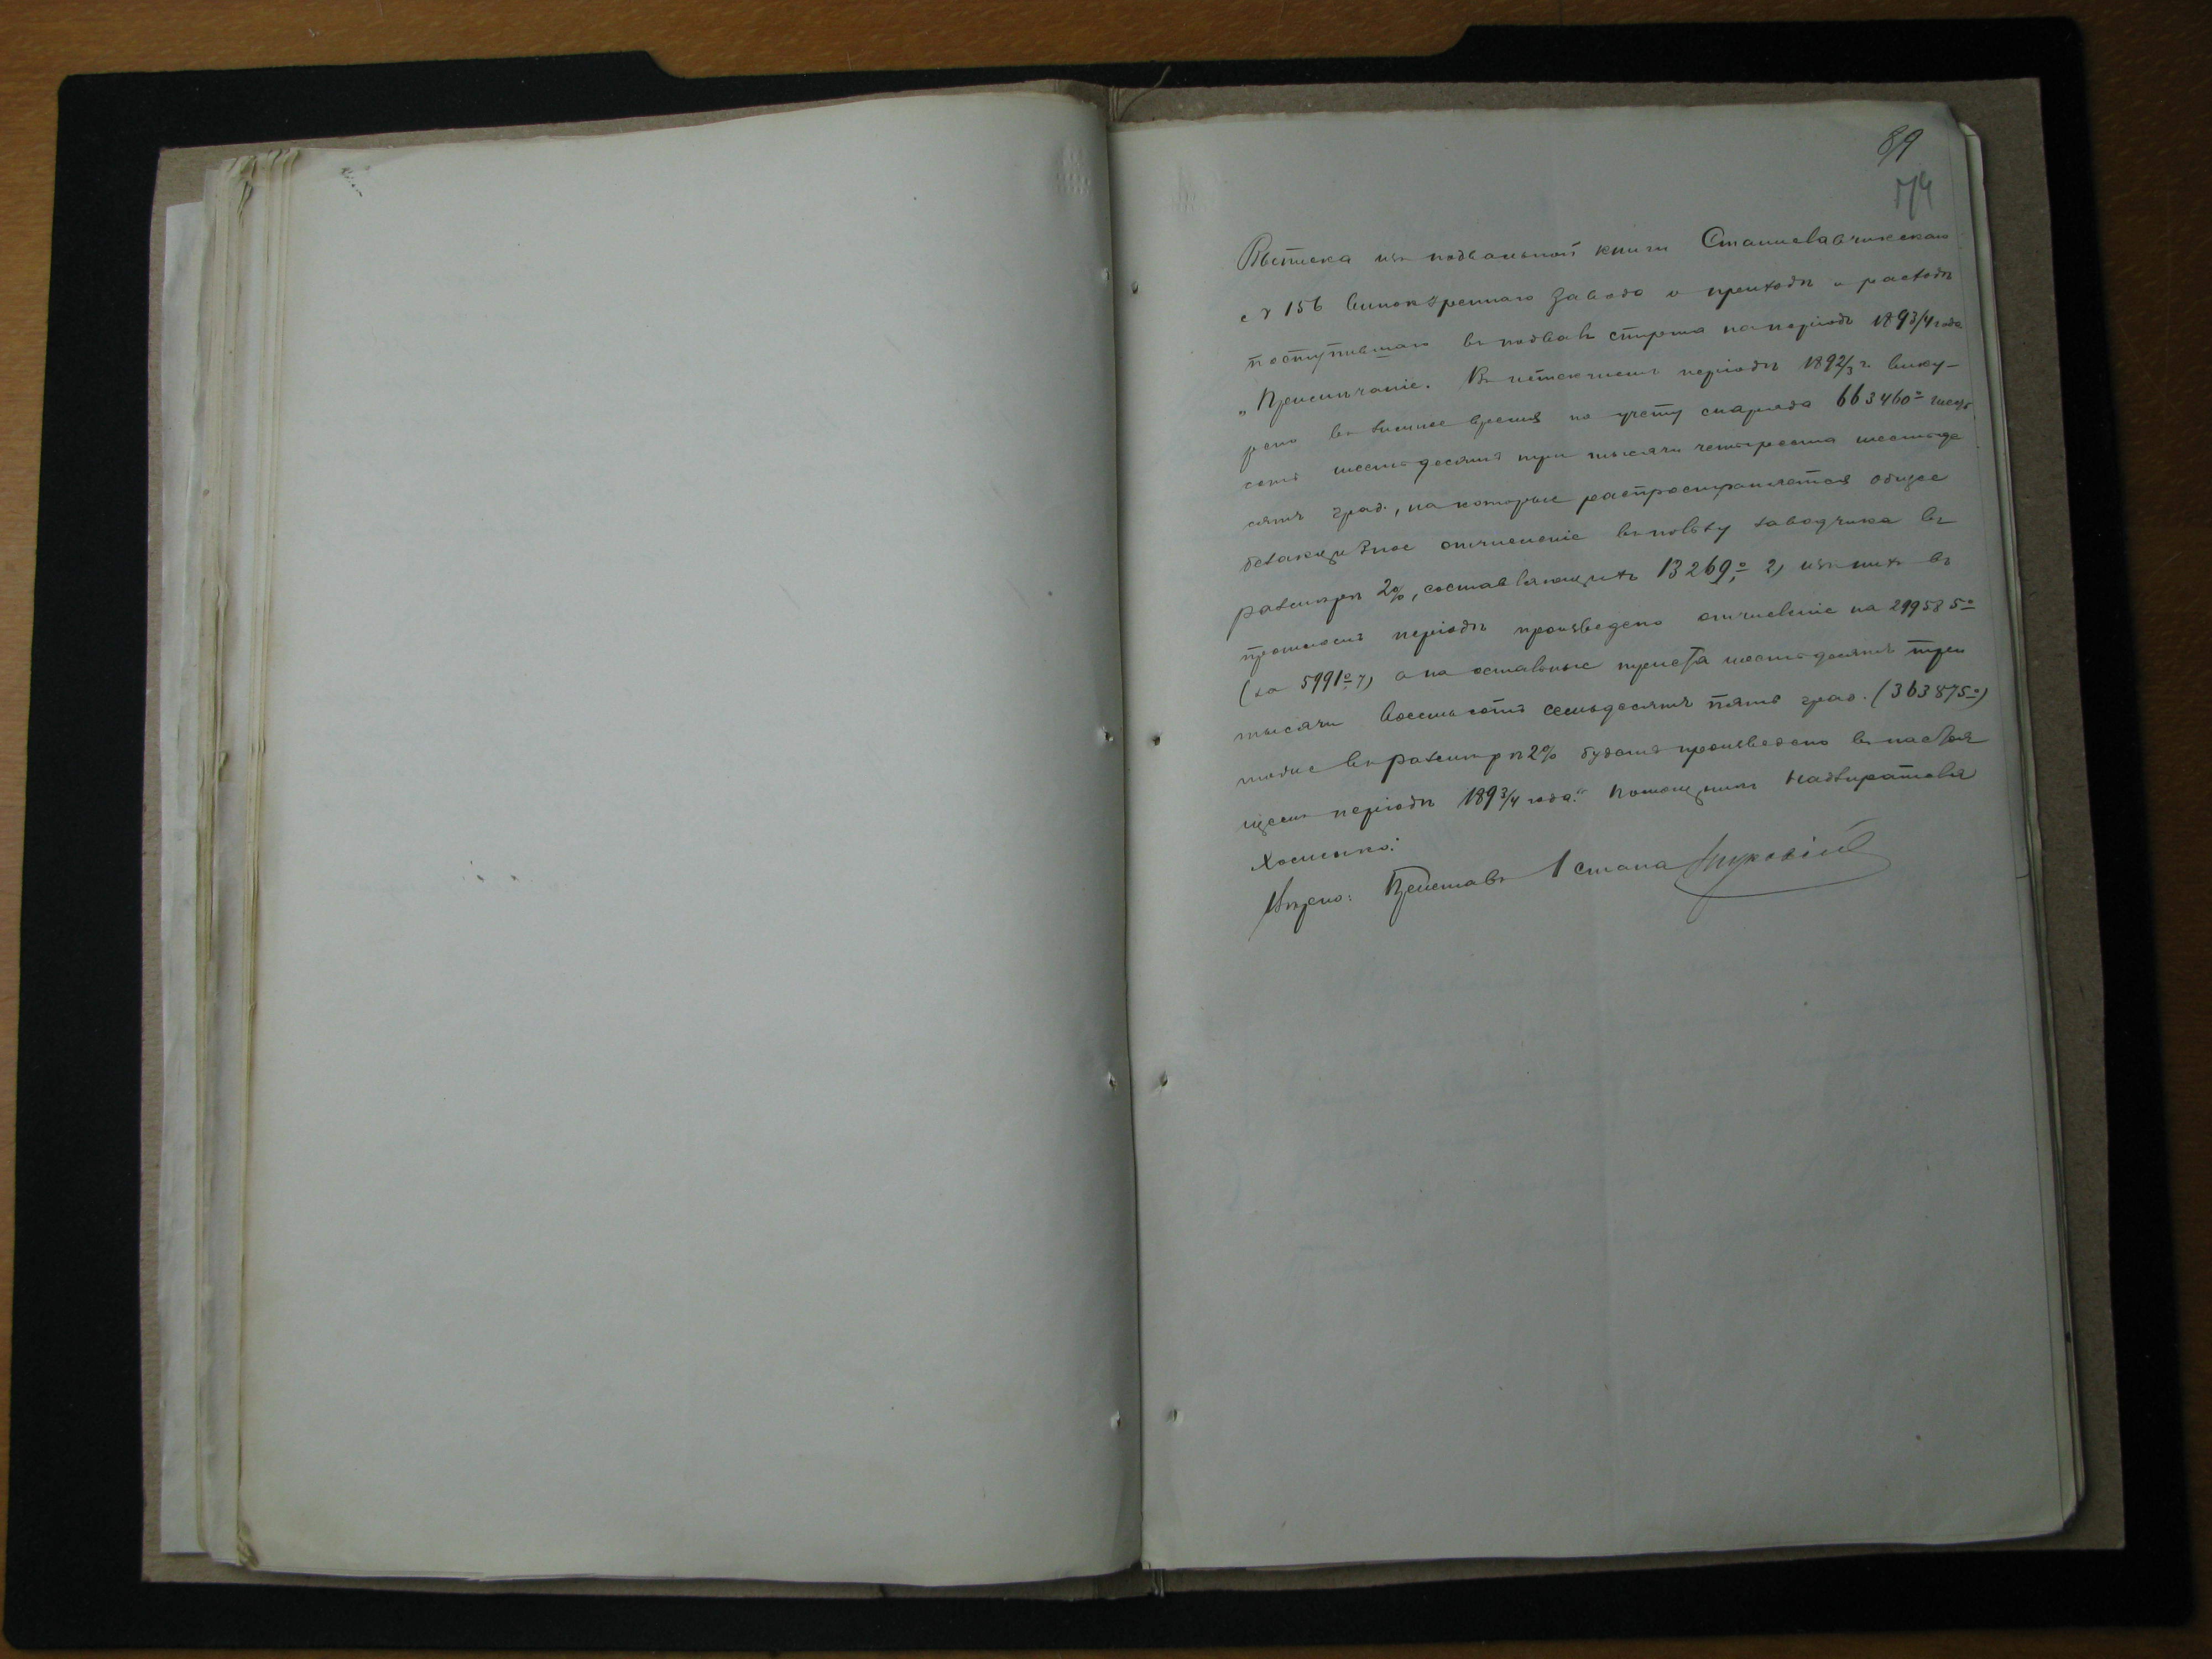 89
74
Выписка изъ подвальной книги Станиславчикскаго
№ 156 винокуреннаго завода о приходѣ и расходѣ
поступившаго въ подвалъ спирта на періодъ 1893/4 года
„Примѣчаніе. Въ истекшемъ періодѣ 1892/3 г. выку-
рено въ зимнее время по учету снаряда 663460° шесть
сотъ шестьдесятъ три тысячи четыреста шестьде
сятъ град., на которые распространяется общее
безакцизное отчисленіе въ пользу заводчика въ
размѣрѣ 2%, составляющихъ 13269,°2, изъ нихъ въ
прошломъ періодѣ произведено отчисленіе на 299585°
(за 5991,°7) а на остальные триста шестьдесятъ три
тысячи восемьсотъ семьдесятъ пять град. (363875°)
тоже въ размѣрѣ 2% будетъ произведено въ настоя
щемъ періодѣ 1893/4 года." Помощникъ Надзирателя
Хоменко.
Вѣрно: Приставъ 1 стана